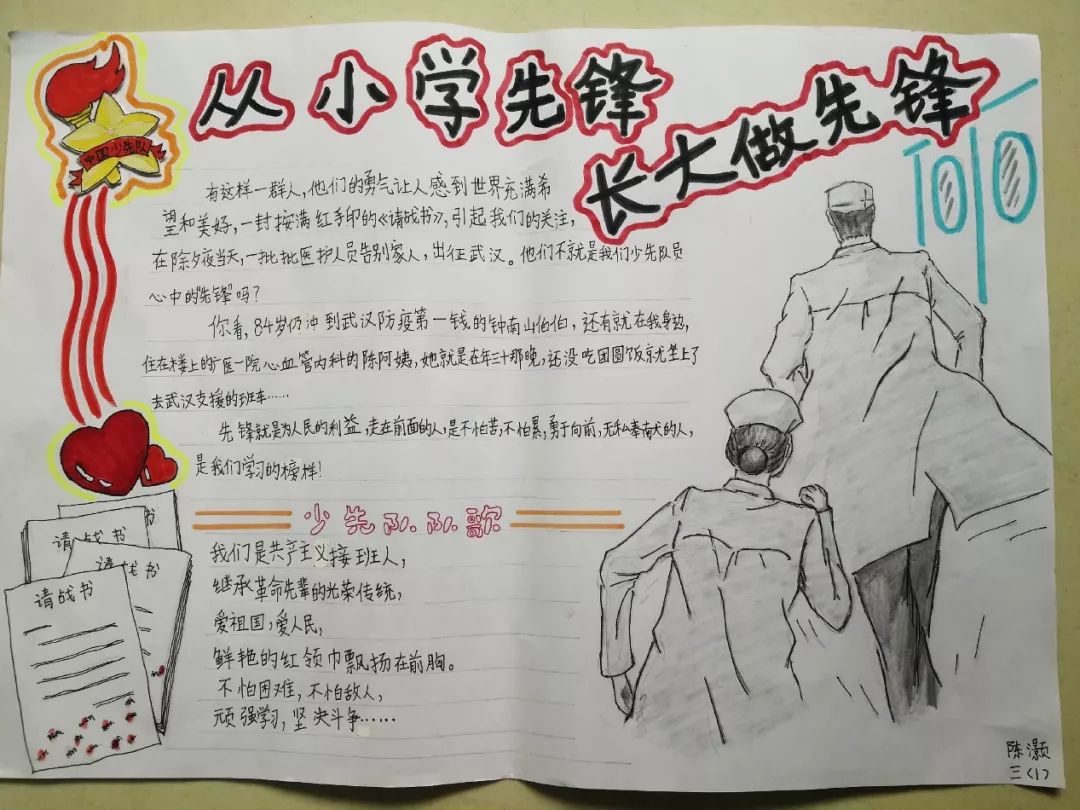 从小学先锋
长大做先锋
中国少先队
有这样一群人,他们的勇气让人感到世界充满希
望和美好,一封按满红手印的《请战书》,引起我们的关注,
在除夕夜当天,一批批医护人员告别家人,出征武汉。他们不就是我们少先队员
心中的“先锋”吗?
你看,84岁仍冲到武汉防疫第一钱的钟南山伯伯,还有就在我身边,
住在楼上的广医一院心血管内科的陈阿姨,她就是在年三十那晚,还没吃团圆饭就坐上了
去武汉支援的班车……
先锋就是为人民的利益,走在前面的人,是不怕苦,不怕累,勇于向前,无私奉献的人,
是我们学习的榜样!
少先队队歌
我们是共产主义接班人,
继承革命先辈的光荣传统,
爱祖国,爱人民,
鲜艳的红领巾飘扬在前胸。
不怕困难,不怕敌人,
顽强学习,坚决斗争……
书
请战书
请战书
请战书
陈灏
三〈1〉